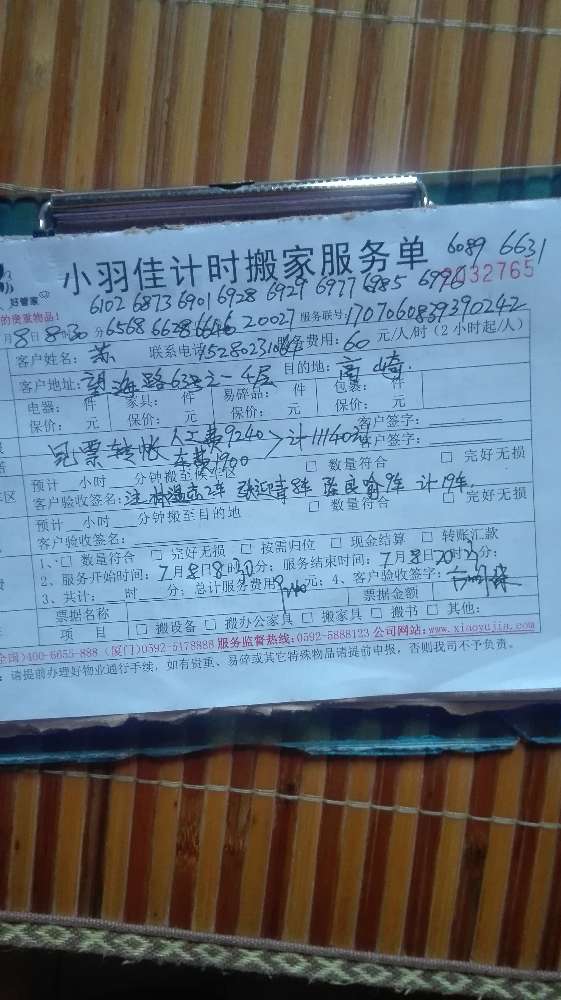 好管家
小羽佳计时搬家服务单 6089 6631
6102 6873 6901 6928 6929 6977 6985 6996 0032765
的贵重物品!
月8日8时30分 6568 6628 6646 20027 服务联号:170706083939 0242
客户姓名: 苏 联系电话 服务费用: 60 元/人/时 (2小时起/人)
客户地址: 望海路63号之一4层 目的地: 高崎
电器: 件 家具: 件 易碎品: 件 包装: 件
保价: 元 保价: 元 保价: 元 保价: 元
客户签字:
见票转帐 人工费9240 > 计11140元 客户签字:
车费1900
预计 小时 分钟搬至候 区 □ 数量符合 □ 完好无损
客户验收签名: 注 2车 8车 9车 计19车
预计 小时 分钟搬至目的地 □ 数量符合 □ 完好无损
客户验收签名:
1、□ 数量符合 □ 完好无损 □ 按需归位 □ 现金结算 □ 转账汇款
2、服务开始时间: 7月8日8时30分; 服务结束时间: 7月8日20时 分;
3、共计: 时 分; 总计服务费用 9240元; 4、客户验收签字:
票据名称 票据金额
项 目 □ 搬设备 □ 搬办公家具 □ 搬家具 □ 搬书 □ 其他:
全国)400-6655-888 (厦门)0592-5178888 服务监督热线:0592-5888123 公司网站:www.xiaoyujia.com
: 请提前办理好物业通行手续, 如有贵重、易碎或其它特殊物品请提前申报, 否则我司不予负责。